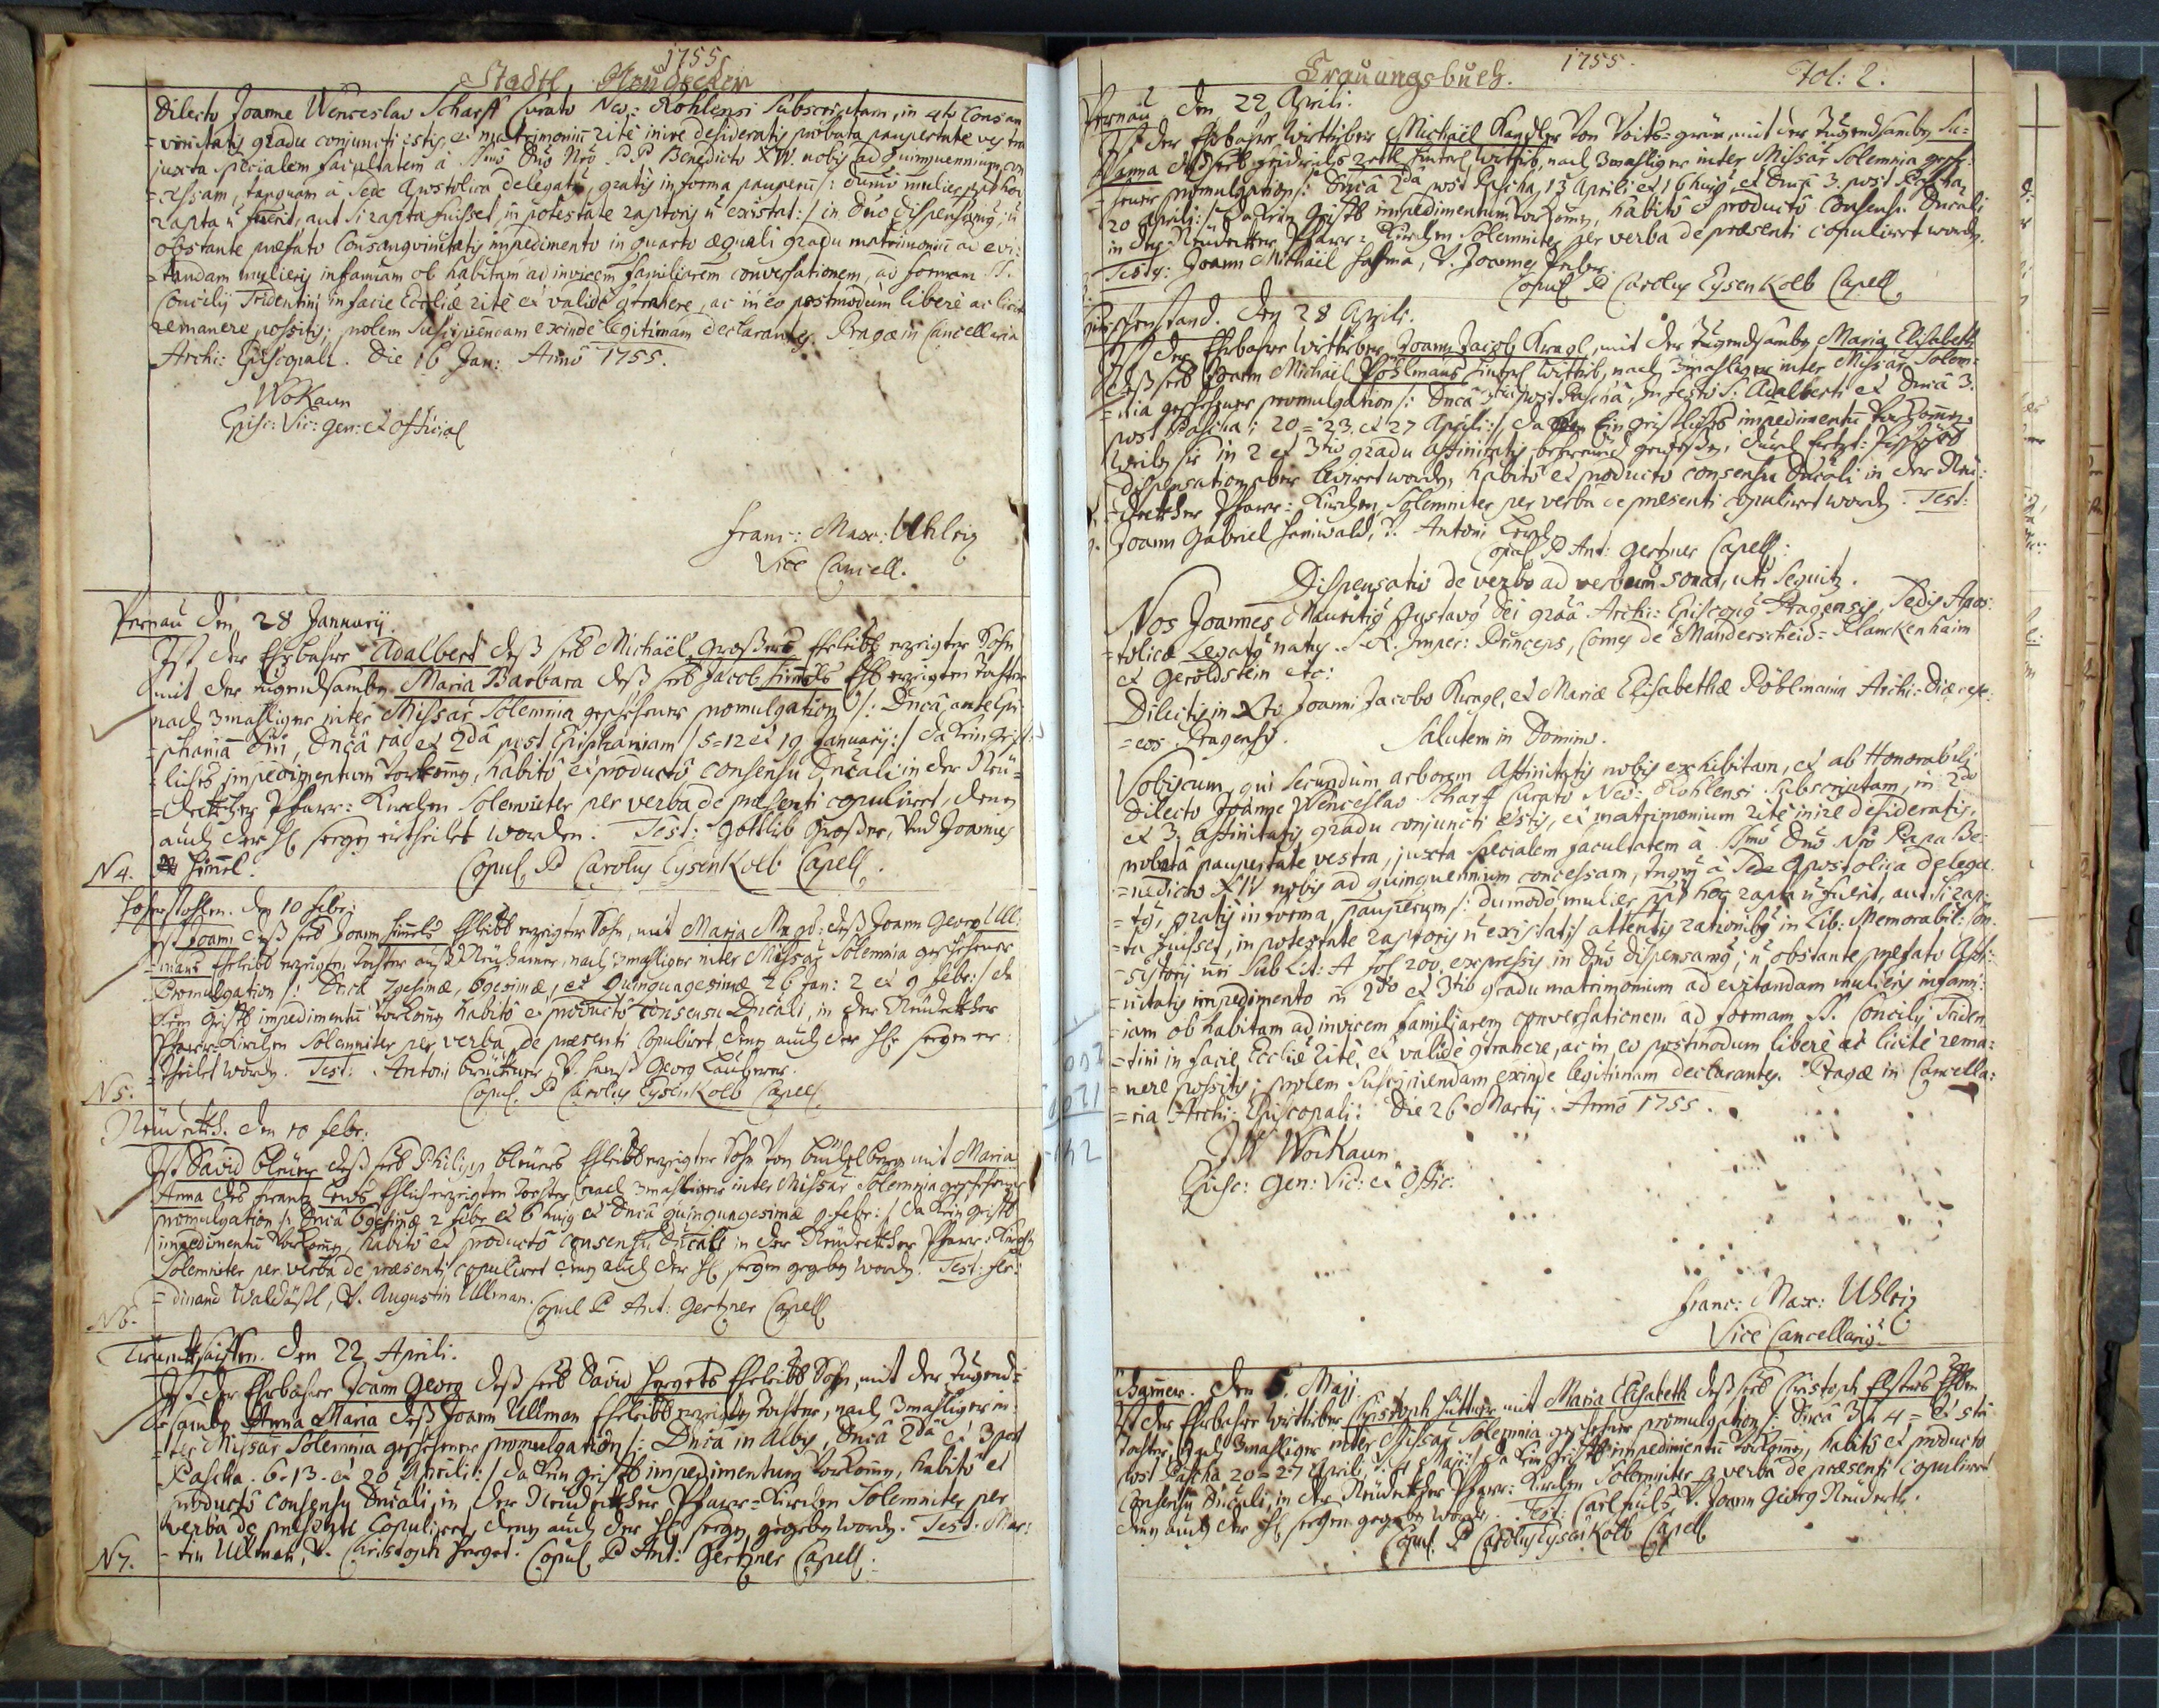 1755
Stadtl Neudecker
Dilecto Joanne Wenceslao Scharff Curato Neo: Rohlensi Subscriptam, in 4to Consan
=vinitatis gradu conjuncti estis, et matrimoniu rite inire desideratis, probata paupertate vestra
juxta specialem facultatem à Ssmo Dno Nro P.P. Benedicto XIV. nobis ad Quinquennium con
=cessam, tanquam à Sede Apostolica delegatus, gratis in forma pauperu /: dumo mulier ppter hoc
rapta n fuerit, aut si rapta fuisset, in potestate raptoris n existat :/ in Dno dispensamus, n
obstante præfato Consangvinitatis impedimento in quarto æquali gradu matrimoniu ad evi:
=tandam mulieris infamiam ob habitam ad invicem familiarem conversationem, ad formam SS.
Concilij Tridentini in facie Eccliæ rite et valide contrahere, ac in eo postmodum libere ac licite
remanere possitis; prolem suscipiendam exinde legitimam declarantes. Pragæ in Cancellaria
Archi: Episcopali. Die 16 Jan: Anno 1755.
Wokaun
Episc: Vic: gen: et official
Franc: Max: Uhlrig
Vice Cancell.
Pernau den 28 January.
Ist der Ehrbahre Adalbert deß seel Michaël Großers Eheleibl erzeigter Sohn
mit der tugendsamben Maria Barbara deß seel Jacob Himmls Ehl erzeigten tochter
nach 3mahliger inter Missar Solemnia geschehener promulgation /: Dnca ante Epi
=phaniā Dni, Dnca 1ma et 2da post Epiphaniam / 5=12 et 19 January :/ da kein geist:
=liches impedimentum vorkomen, habito et producto consensu Dncali in der Neü=
=decker Pfarr: Kirchen Solemniter per verba de præsenti copuliret, denen
auch der H. seegen ertheilet worden. Test: Gottlib Großer, Und Joannes
Himmel. Copul. P Carolus Eysenkolb Capell.
N 4.
Hohenstohlen. den 10 febr:
Ist Joann deß seel Joann Himels Eheleibl erzeigter Sohn, mit Maria Magd: deß Joann Georg Ull:
=mans Eheleibl erzeigten tochter auß Neühamer, nach 3mahliger inter Missar Solemnia geschehener
Promulgation /: Dnca 7gesimæ, 6gesimæ, et Quinquagesimæ 26 Jan: 2 et 9 febr: / da
kein Geistl impedimentu vorkomen habito et producto consensu Dncali, in der Neüdecker
Pfarr-Kirchen Solemniter per verba de præsenti copulirt, denen auch der Hl: seegen er:
=theilet worden. Test: Antoni Brückner, V. Hanß Georg Lauberer.
Copul. P Carolus Eysenkolb Capell.
N 5.
Neüdeckh. den 10 febr:
Ist David Bleüer deß seel Philipp Bleüers Eheleibl erzeigter Sohn von Beüchelberg mit Maria
Anna deß Frantz Leüs Ehlich erzeigten tochter nach 3mahliger inter Missar Solemnia geschehener
promulgation /: Dnca 6gesimæ 2 febr et 6 huig et Dnca Quinquagesimæ 9 febr: / da kein geistl
impedimentu vorkomen, habito et producto consensu Dncali in der Neüdecker Pfarr: Kirchen
Solemniter per verba de præsenti copuliret denen auch der Hl seegen gegeben worden. Test: Fer:
=dinand Waldösstl, V. Augustin Ullman. Copul P Ant: Gertner Capell
N 6.
Trinckseiffen. den 22 Aprili.
Ist der Ehrbahre Joann Georg deß seel David Hergets Eheleibl Sohn, mit der tugend=
samben Anna Maria deß Joann Ullman Eheleibl erzeigten tochter, nach 3mahliger in:
=ter Missar Solemnia geschehener promulgation /: Dnca in Albis, Dnca 2da et 3 post
Pascha. 6. 13. et 20 Aprilis: / da kein geistl impedimentum vorkomen, habito et
producto consensu Dncali, in der Neüdecker Pfarr=Kirchen Solemniter per
verba de præsenti Copuliret, denen auch der Hl seegen gegeben worden. Test: Mar:
=tin Ullman, V. Christoph Herget. Copul P Ant: Gertner Capell:
N 7.
Trauungsbuch. 1755. Fol: 2.
Pernau den 22 Aprili.
Ist der Ehrbahre Wittiber Michaël Kandler von Voits=grün, mit der tugendsamben Su=
=sanna deß seel hinterl Wittib, nach 3mahliger inter Missar Solemnia gesche:
=hener promulgation /: Dnca 2da post Pascha, 13 Aprili et 16 huig et Dnca 3. post Pascha
20 Aprili: / da kein Geistl impedimentum vorkomen, habito et producto Consensu Dncali
in der Neüdecker Pfarr: Kirchen Solemniter per verba de præsenti copuliret worden.
Testes: Joann Michaël Hahma, V. Joannes
Copul. P Carolus Eysenkolb Capell.
den 28 Aprili.
Ist der Ehrbahre Wittiber Joann Jacob Kragl, mit der tugendsamben Maria Elisabeth
deß seel Joann Michaël Pöhlmans hinterl Wittib, nach 3mahliger inter Missar Solem:
=nia geschehener promulgation /: Dnca 3tia post Pascha, In festo S: Adalberti et Dnca 3.
post Pascha: 20=23. et 27 Aprili: / da ein geistliches impedimentu vorkomen
weilen sie in 2 et 3tio gradu Affinitatis befreünd gewesen, durch
dispensation aber leviret worden, habito et producto consensu Dncali in der Neü:
=decker Pfarr: Kirchen, Solemniter per verba de præsenti copuliret worden. Test:
Joann Gabriel Heinwald, V. Antoni
Copul P Ant: Gertner Capell:
Dispensatio de verbo ad verbum sonat, uti sequitur.
Nos Joannes Mauritius Gustavus Dei gra Archi: Episcopus Pragensis, Sedis Apos:
=tolicæ Legatus natus. S.R. Imper: Princeps, Comes de Manderscheid=Planckenhaim
et Geroldstein etc:
Dilectis in Xto Joanni Jacobo Kragl, et Mariæ Elisabethæ Pöhlmanin Archi=Diœces:
=eos. Pragensis. Salutem in Domino.
Vobiscum, qui secundum arborem Affinitatis nobis exhibitam, et ab Honorabili
Dilecto Joanne Wenceslao Scharff Curato Neo: Rohlensi Subscriptam, in 2do
et 3. affinitatis gradu conjuncti estis, et matrimonium rite inire desideratis,
probata paupertate vestra, juxta specialem facultatem à Ssmo Dno Nro Papa Be:
=nedicto XIV nobis ad quinquennium concessam, tnqm à Sede Apostolica delega:
=tus, gratis in forma pauperum /: dumodo mulier ppter hoc rapta n fuerit, aut si rap:
=ta fuisset, in potestate raptoris n existat :/ attentis rationibus in Lib: Memorabil: Con:
=sistorij nri sub Lit: A fol 200. expressis, in Dno dispensamus; n obstante præfato Affi:
=nitatis impedimento in 2do et 3tio gradu matrimonium ad evitandam mulieris infam:
=iam ob habitam ad invicem familiarem conversationem ad formam SS. Concilij Triden:
=tini in facie Eccliæ rite, et valide contrahere, ac in eo postmodum libere ac licite rema:
=nere possitis; prolem suscipiendam exinde legitimam declarantes. Pragæ in Cancella:
=ria Archi: Episcopali: Die 26 Martij. Anno 1755.
Wokaun
Episc: Gen: Vic: et Offic:
Franc: Max: Uhlrig
Vice Cancellarius
den 5. Maji.
Ist der Ehrbahre Wittiber Christoph Hüttner mit Maria Elisabeth deß seel Christoph
tochter, nach 3mahliger inter Missar Solemnia geschehener promulgation /: Dnca 3. 4= et 5ta
post Pascha 20=27 April, et 4 Maji: / da kein geistl impedimentu vorkomen, habito et producto
Consensu Dncali, in der Neüdecker Pfarr: Kirchen Solemniter p verba de præsenti copuliret
denen auch der Hl seegen gegeben worden. Test: Carl V. Joann Georg Neüdert.
Copul. P Carolus Eysenkolb Capell